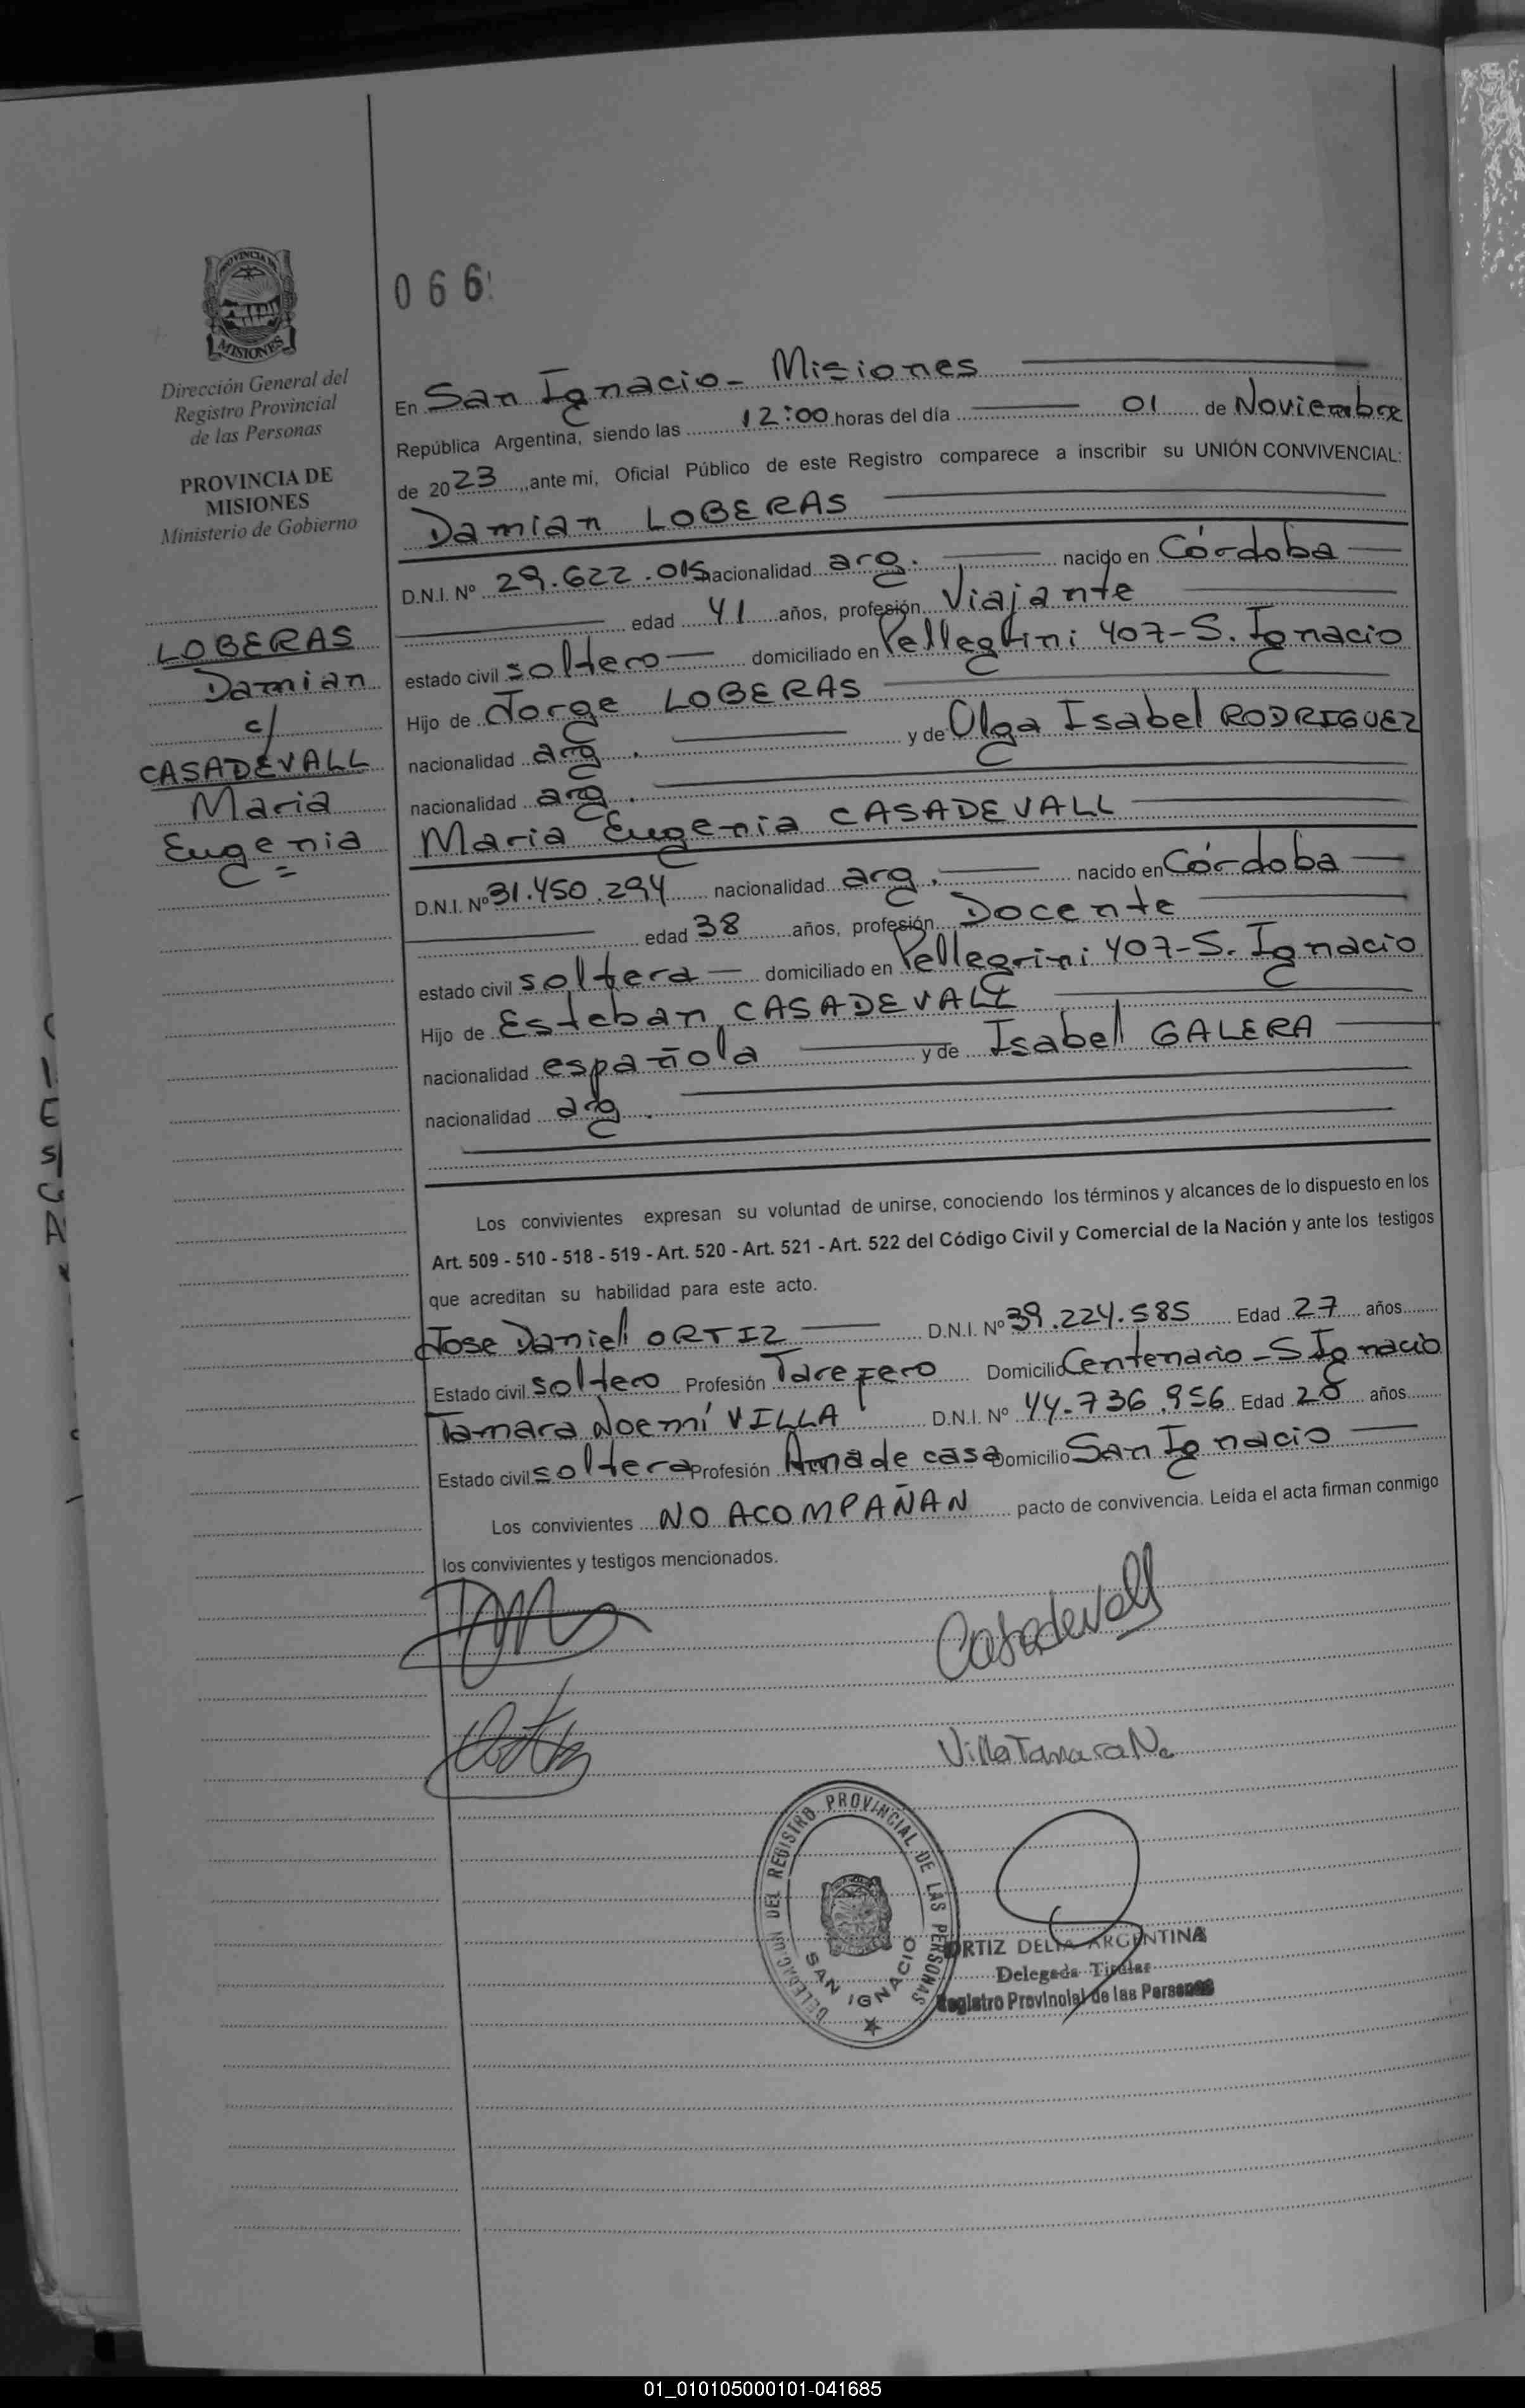 066
PROVINCIA DE
MISIONES
Dirección General del
Registro Provincial
de las Personas
PROVINCIA DE
MISIONES
Ministerio de Gobierno
LOBERAS
Damian
c/
CASADEVALL
Maria
Eugenia
En San Ignacio - Misiones
República Argentina, siendo las 12:00 horas del día 01 de Noviembre
de 2023, ante mi, Oficial Público de este Registro comparece a inscribir su UNIÓN CONVIVENCIAL:
Damian LOBERAS
D.N.I. Nº 29.622.015 nacionalidad arg. nacido en Córdoba
edad 41 años, profesión Viajante
estado civil soltero domiciliado en Pellegrini 407-S. Ignacio
Hijo de Jorge LOBERAS
nacionalidad arg. y de Olga Isabel RODRIGUEZ
nacionalidad arg.
Maria Eugenia CASADEVALL
D.N.I. Nº 31.450.294 nacionalidad arg. nacido en Córdoba
edad 38 años, profesión Docente
estado civil soltera domiciliado en Pellegrini 407-S. Ignacio
Hijo de Esteban CASADEVALL
nacionalidad española y de Isabel GALERA
nacionalidad arg.
Los convivientes expresan su voluntad de unirse, conociendo los términos y alcances de lo dispuesto en los
Art. 509 - 510 - 518 - 519 - Art. 520 - Art. 521 - Art. 522 del Código Civil y Comercial de la Nación y ante los testigos
que acreditan su habilidad para este acto.
Jose Daniel ORTIZ D.N.I. Nº 39.224.585 Edad 27 años
Estado civil soltero Profesión Tarefero Domicilio Centenario - S Ignacio
Tamara Noemí VILLA D.N.I. Nº 44.736.956 Edad 20 años
Estado civil soltera Profesión Ama de casa Domicilio San Ignacio
Los convivientes NO ACOMPAÑAN pacto de convivencia. Leída el acta firman conmigo
los convivientes y testigos mencionados.
Casadevall
Villa Tamara N.
DELEGACION DEL REGISTRO PROVINCIAL DE LAS PERSONAS
SAN IGNACIO
ORTIZ DELIA ARGENTINA
Delegada Titular
Registro Provincial de las Personas
01_010105000101-041685